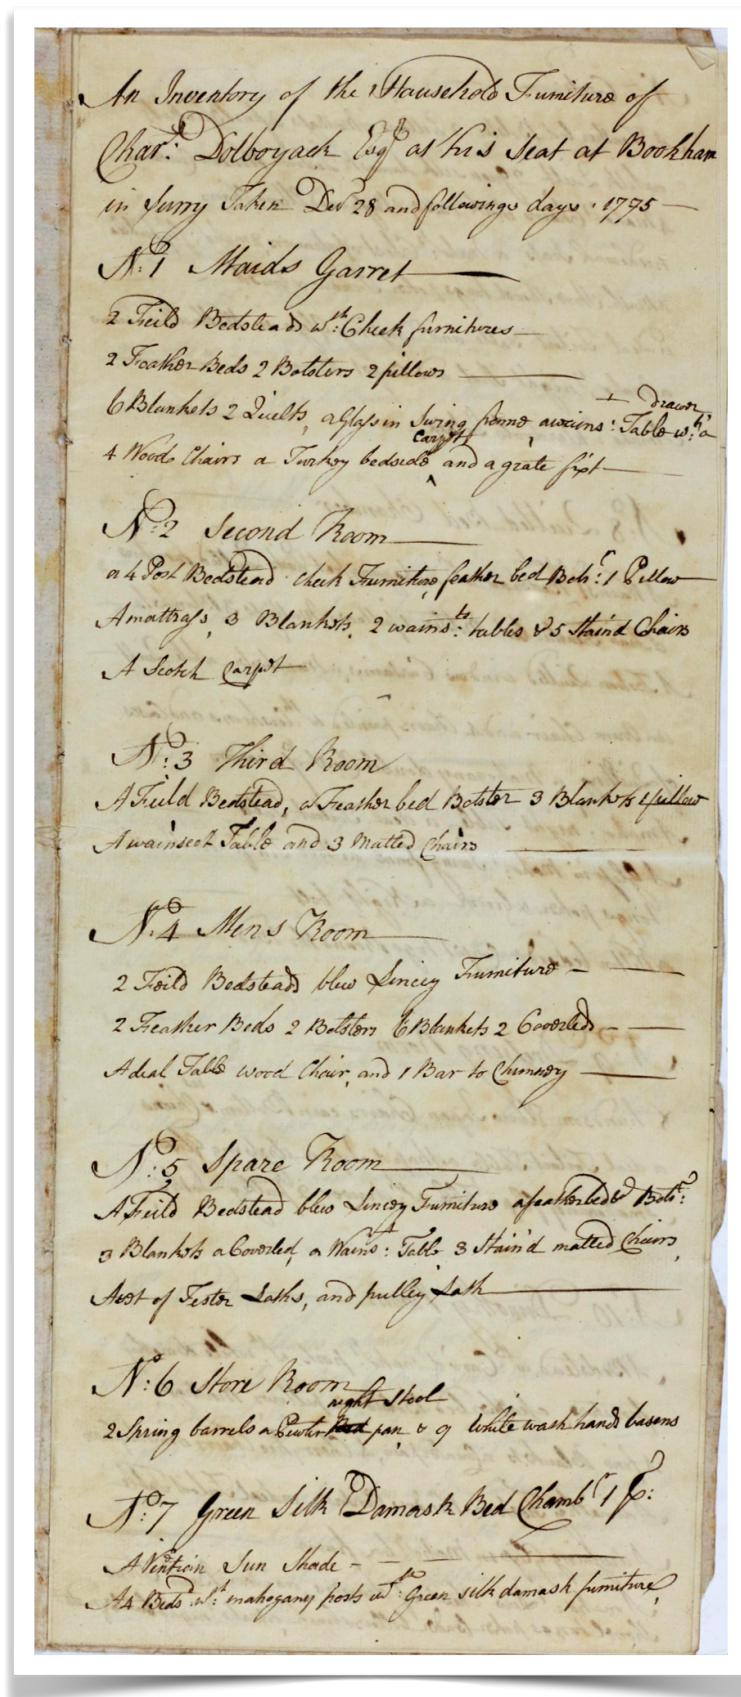 An Inventory of the Household Furniture of
Char.s Dolboyack Esq.r at his Seat at Bookham
in Surry Taken Dec.r 28 and following days 1775
N.o 1 Maids Garret
2 Feild Bedsteads w.th Check furnitures
2 Feather Beds 2 Bolsters 2 pillows
6 Blankets 2 Quilts, a Glass in Swing frame a wains.t Table w.th a drawer
4 Wood Chairs a Turkey bedside carpet and a grate fixt
N.o 2 Second Room
a 4 Post Bedstead check Furniture, feather bed Bols.r 1 Pillow
A mattrass, 3 Blankets, 2 wains.ts tables & 5 Stain'd Chairs
A Scotch Carpet
N.o 3 Third Room
A Feild Bedstead, a Feather bed Bolster 3 Blankets 1 pillow
A wainscot Table and 3 Matted Chairs
N.o 4 Mens Room
2 Feild Bedsteads blew Lincey Furniture
2 Feather Beds 2 Bolsters 6 Blankets 2 Coverleds
A deal Table wood Chair, and 1 Bar to Chimney
N.o 5 Spare Room
A Feild Bedstead blew Lincey Furniture a featherbed & Bols.r
3 Blankets a Coverled, a Wains.t Table 3 Stain'd matted Chairs,
A set of Tester Laths, and pulley Lath
N.o 6 Store Room
2 Spring barrels a Pewter night stool pan & 9 White wash hand basons
N.o 7 Green Silk Damask Bed Chamb.r 1 p.r
A Venetian Sun Shade
A 4 Bed.d w.th mahogany posts w.th Green silk damask furniture,